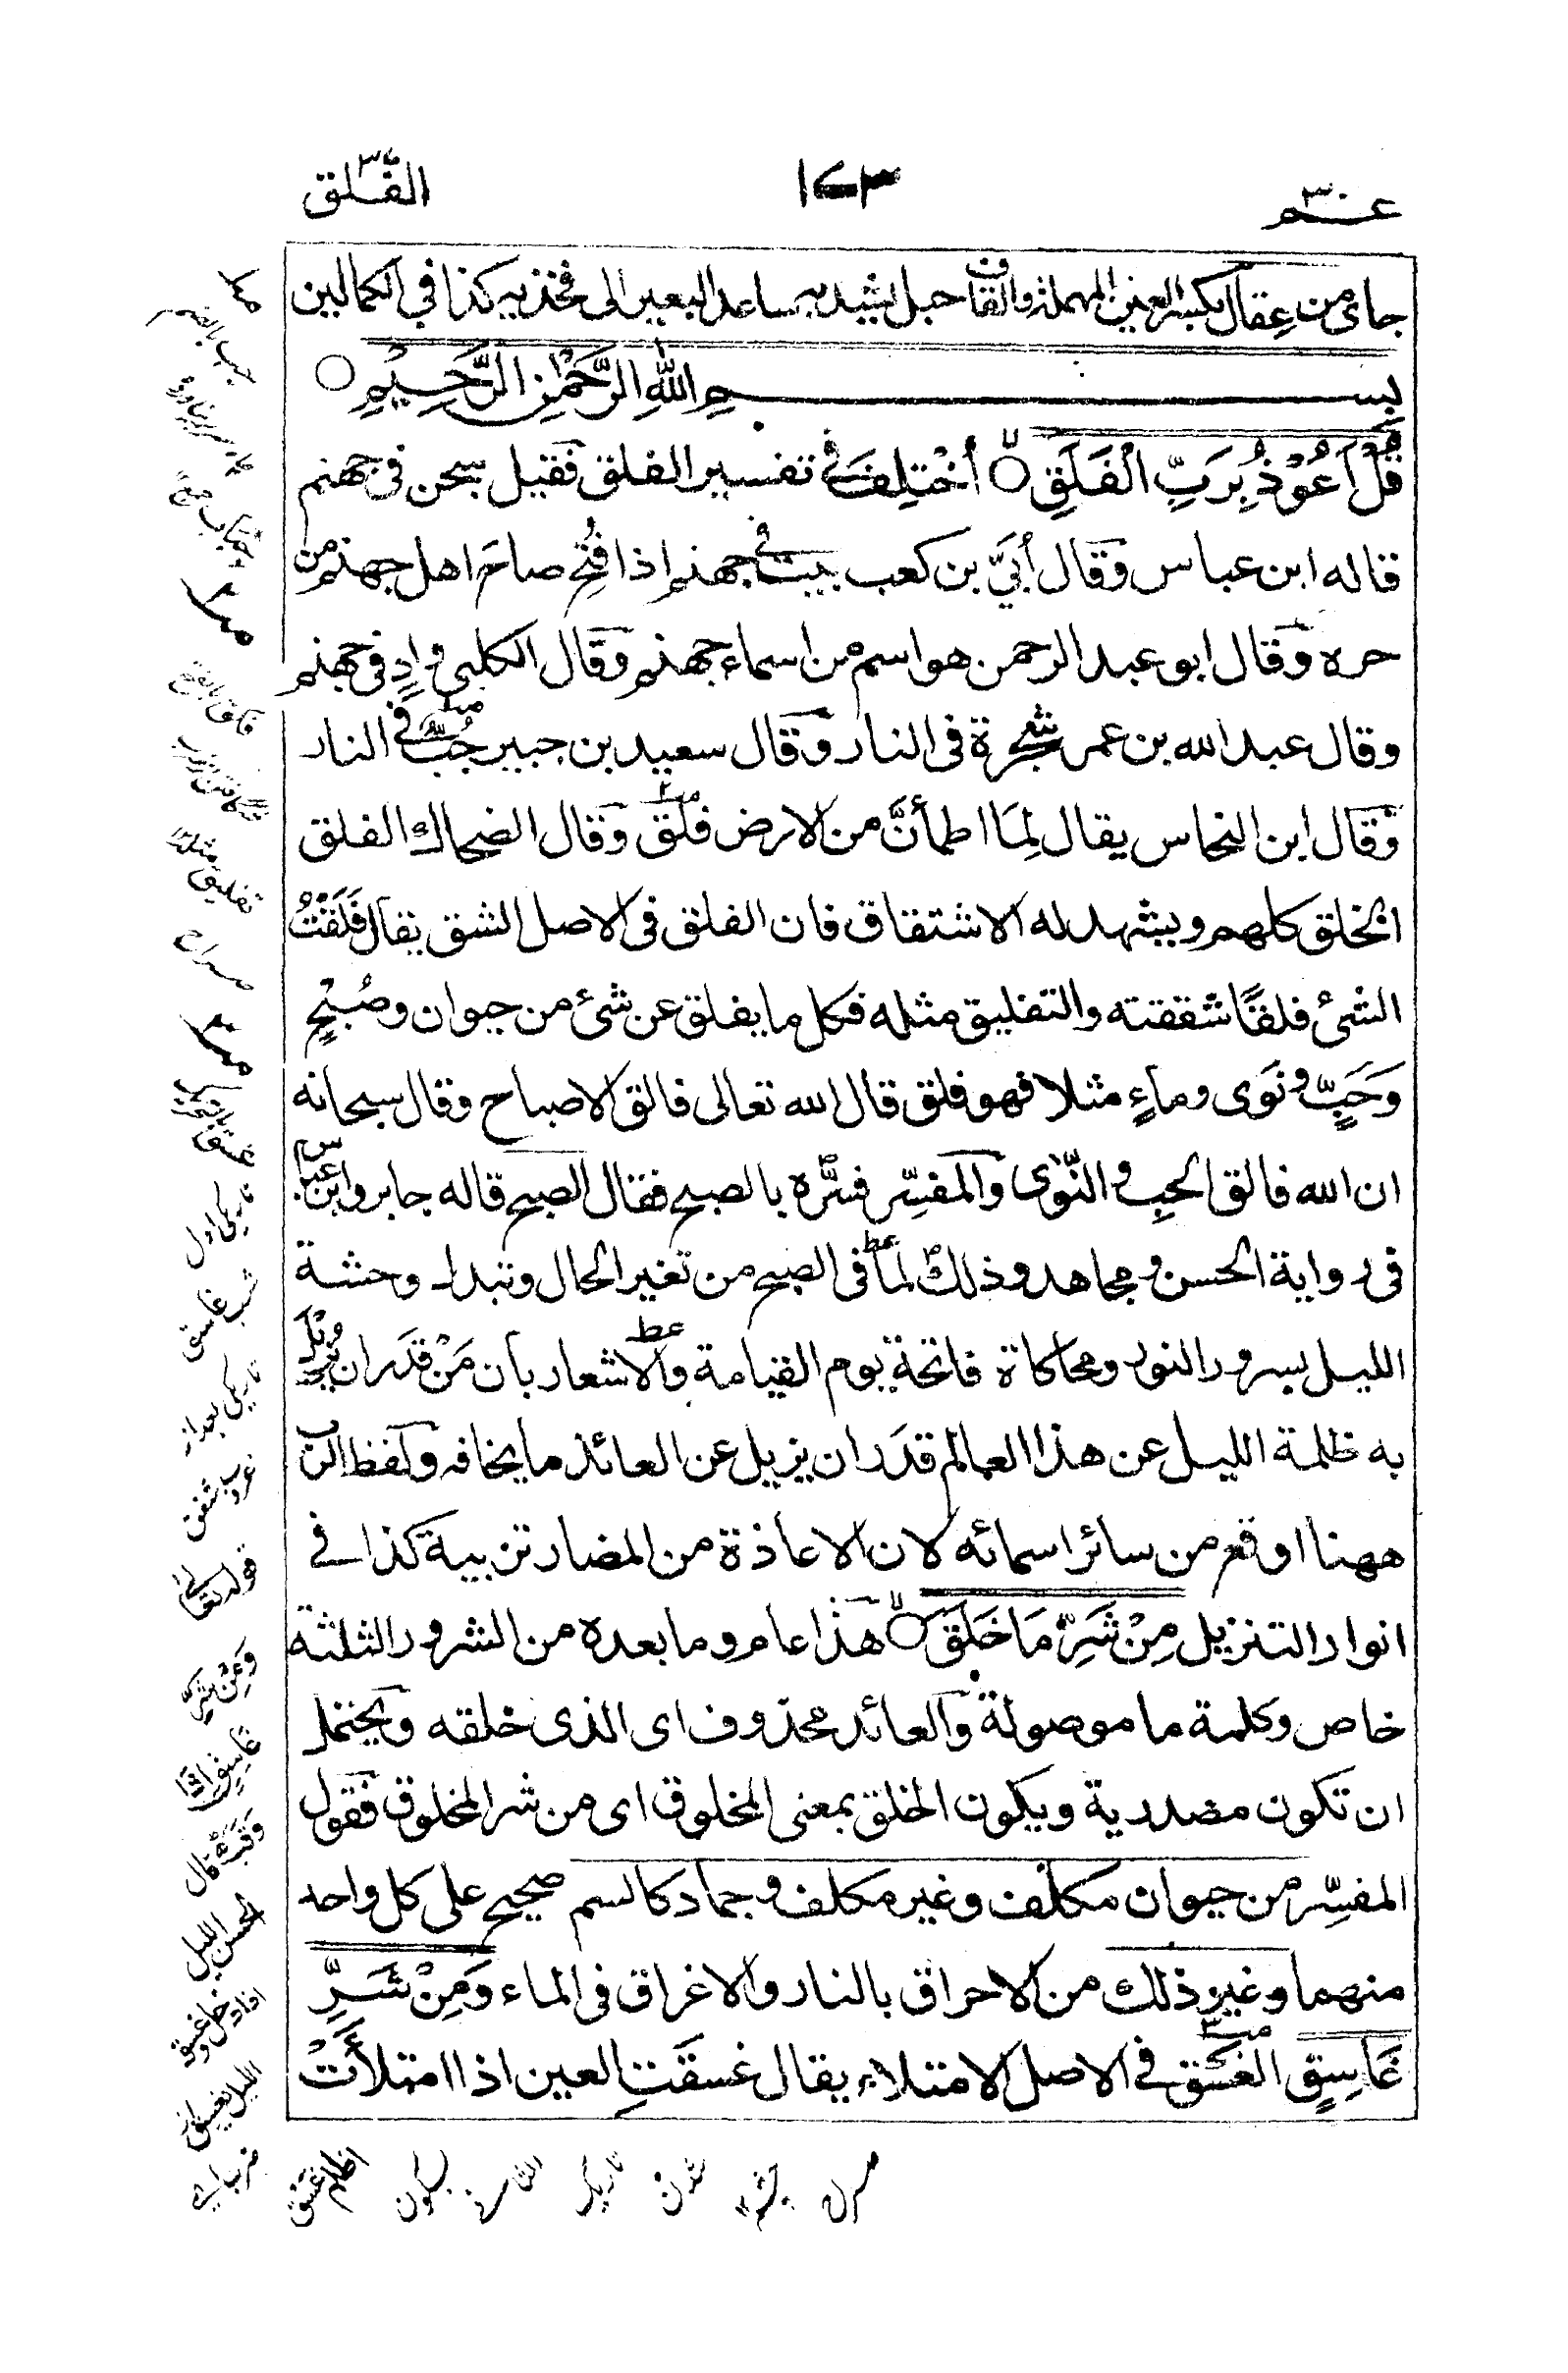 عـم ٣٠
١٧٣
الفلق
جامي من عِقال بكسر العين المهملة والقاف حبل يشد به ساعد البعير الى فخذيه كذا في الكمالين
بِسـمِ اللّٰهِ الرَّحْمٰنِ الرَّحِيْمِ ○
قُلْ اَعُوْذُ بِرَبِّ الْفَلَقِ ○ اُخْتِلِفَ في تفسير الفلق فقيل سجن في جهنم
قاله ابن عباس وقال اُبَيّ بن كعب بيت في جهنم اذا فُتِح صاح اهل جهنم من
حره وقال ابو عبد الرحمن هو اسم من اسماء جهنم وقال الكلبي وادٍ في جهنم
وقال عبد الله بن عمر شجرة في النار وقال سعيد بن جبير جُبّ في النار
وقال ابن النحاس يقال لِمَا اطمأنَّ من الارض فلق وقال الضحاك الفلق
الخلق كلهم ويشهد له الاشتقاق فان الفلق في الاصل الشق يقال فَلَقْتُ
الشئ فلقًا شققته والتفليق مثله فكل ما يفلق عن شئ من حيوان وصُبْحٍ
وَحَبٍّ ونَوى وماءٍ مثلا فهو فلق قال الله تعالى فالق الاصباح وقال سبحانه
ان الله فالق الحبِ والنّوى والمفسِّر فسَّره بالصبح فقال الصبح قاله جابر وابن عباس
في رواية الحسن ومجاهد وذلك لما في الصبح من تغير الحال وتبدل وحشة
الليل بسرور النور ومحاكاة فاتحة يوم القيامة والاشعار بأن مَنْ قدَر ان يُزيْلَ
به ظلمة الليل عن هذا العالم قدَر ان يزيل عن العائذ ما يخافه ولفظ الرب
ههنا اوقع من سائر اسمائه لان الاعاذة من المضار تربية كذا في
انوار التنزيل مِنْ شَرِّ مَا خَلَقَ ○ هذا عام وما بعده من الشرور الثلثة
خاص وكلمة ما موصولة والعائد محذوف اى الذى خلقه ويحتمل
ان تكون مصدرية ويكون الخلق بمعنى المخلوق اى من شر المخلوق فقول
المفسِّر من حيوان مكلف وغير مكلف وجماد كالسم صحيح على كل واحد
منهما وغير ذلك من الاحراق بالنار والاغراق في الماء وَمِنْ شَرِّ
غَاسِقٍ الغسق في الاصل الامتلاء يقال غسقَتِ العين اذا امتلأَتْ
جب بالضم
تفليق مثله
تاريكى اول
شب غاسق
تاريكى بعد از
غروب شفق
قوله تعالى
وَمِنْ شَرِّ
غَاسِقٍ اِذَا
وَقَبَ قال
الحسن الليل
اذا دخل وغسق
الليل يغسق از
ضرب
اظلم غسق